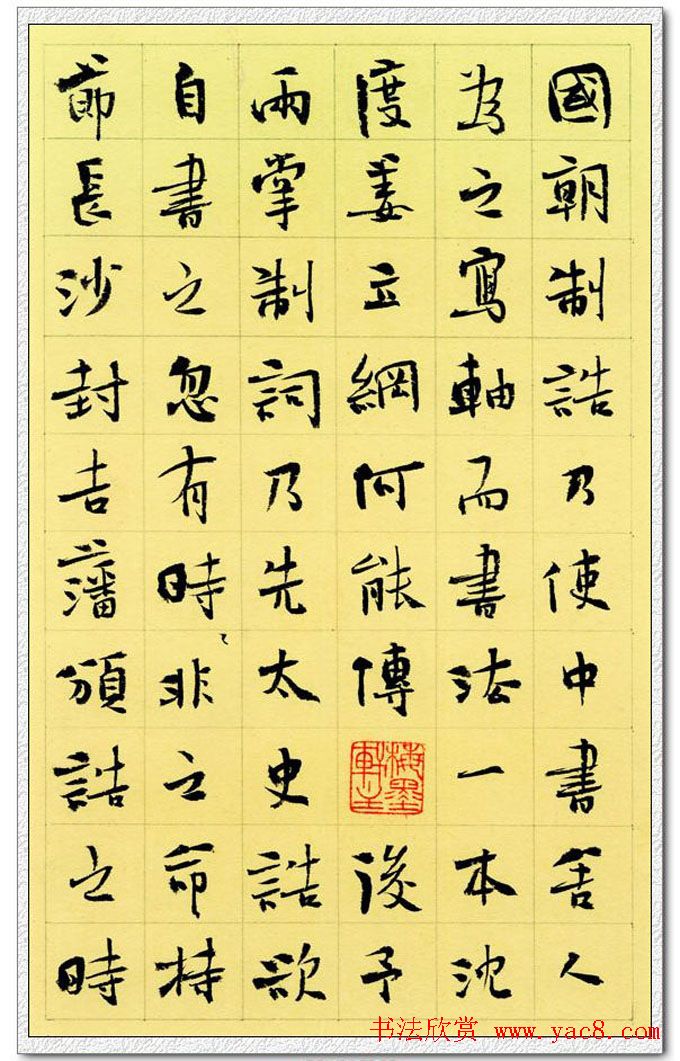 國朝制誥乃使中書舍人
為之寫軸而書法一本沈
度姜立綱何能傳後予
兩掌制詞乃先太史誥欲
自書之忽有時非之命持
節長沙封吉藩頒誥之時
书法欣赏 www.yac8.com